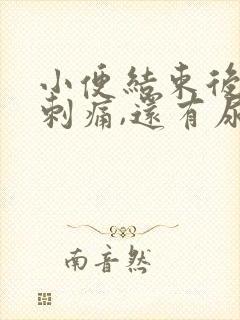 小便結束後
刺痛,還有尿
南音然